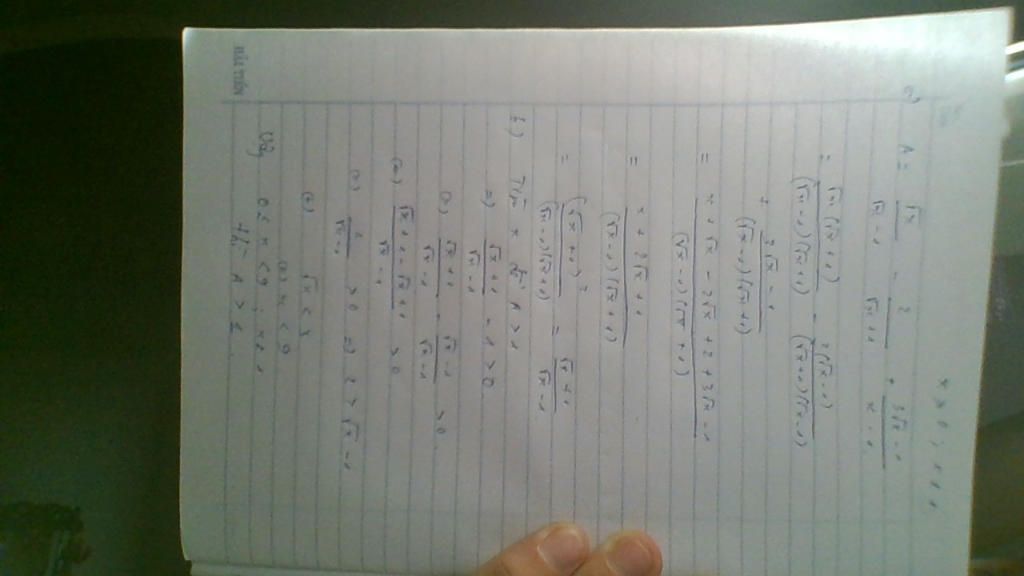 x ≥ 0 ; x ≠ 1
a) A = √x / (√x - 1) - 2 / (√x + 1) + (3√x - 1) / (x - 1)
= √x(√x + 1) / (√x - 1)(√x + 1) - 2(√x - 1) / (√x + 1)(√x - 1)
+ (3√x - 1) / (√x - 1)(√x + 1)
= (x + √x - 2√x + 2 + 3√x - 1) / (√x - 1)(√x + 1)
= (x + 2√x + 1) / (√x - 1)(√x + 1)
= (√x + 1)² / (√x - 1)(√x + 1) = (√x + 1) / (√x - 1)
b) Tìm x để A > 1
=) (√x + 1) / (√x - 1) - 1 > 0
(=) (√x + 1) / (√x - 1) - (√x - 1) / (√x - 1) > 0
(=) (√x + 1 - √x + 1) / (√x - 1) > 0
(=) 2 / (√x - 1) > 0 =) 2 > √x - 1
(=) √x < 3
(=) x < 9
Vậy 0 ≤ x < 9 ; x ≠ 1
thì A > 1